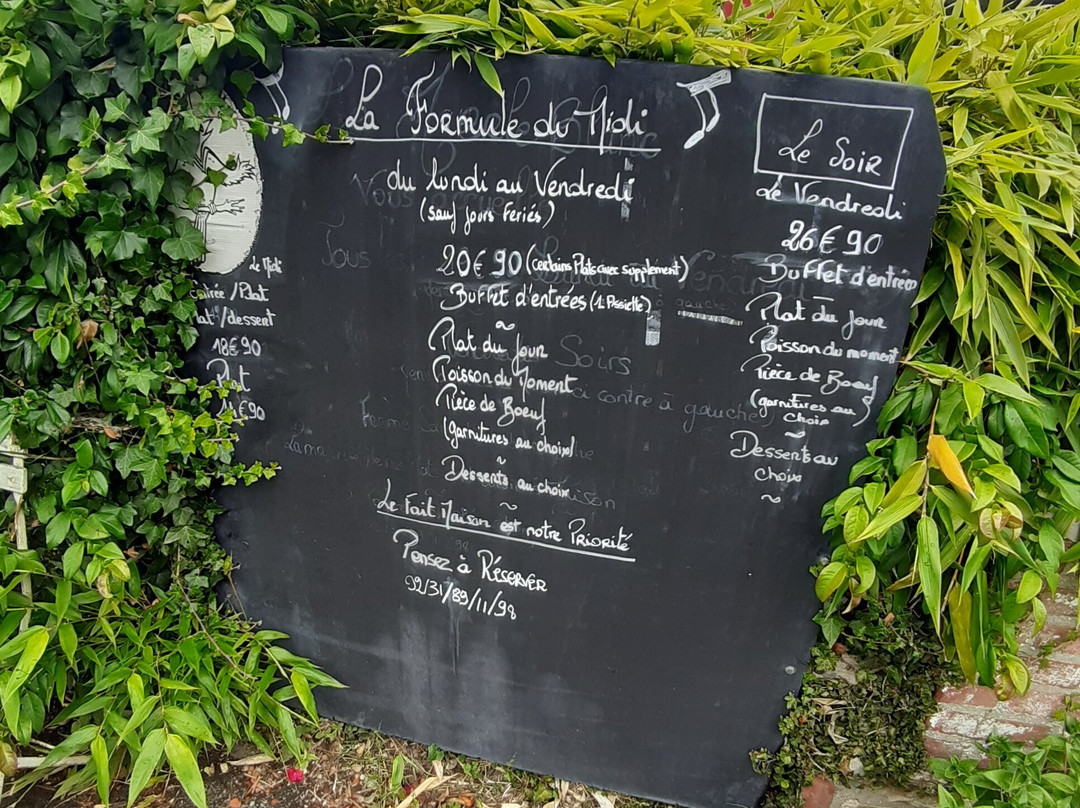 La Formule du Midi
du lundi au Vendredi
(sauf jours Feriés)
20€90 (certains Plats avec supplement)
Buffet d'entrées (1 Assiette)
~
Plat du jour
Poisson du Moment
Pièce de Boeuf
(garnitures au choix)
~
Desserts au choix
~
Le Fait Maison est notre Priorité
Pensez à Réserver
02/31/89/11/98
Le Midi
Entrée/Plat
Plat/dessert
18€90
Plat
14€90
Le Soir
Le Vendredi
26€90
Buffet d'entrées
~
Plat du jour
Poisson du moment
Pièce de Boeuf
(garnitures au
choix)
~
Desserts au
choix
~